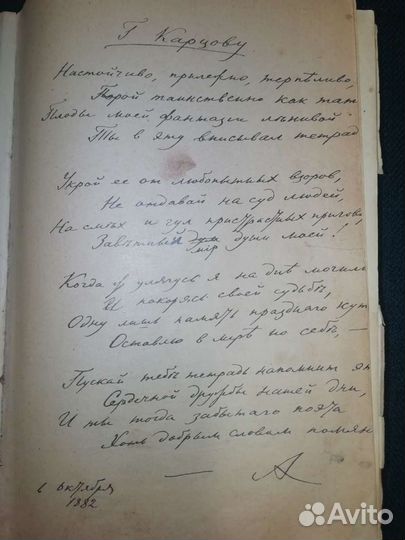 Г Карцову
Настойчиво, прилежно, терпѣливо,
Порой таинственно как тат
Плоды моей фантазіи лѣнивой
Ты в эту вписывал тетрад
Укрой ее от любопытных взоров,
Не отдавай на суд людей,
На смѣх и гул пристрастных пригово
Завѣтный мір души моей!
Когда улягусь я на днѣ могилы
И покорясь своей судьбѣ,
Одну лишь память празднаго
Оставлю в мірѣ по себѣ, —
Пускай тебѣ тетрадь напомнит
Сердечной дружбы нашей дни,
И ты тогда забытаго поэта
Хоть добрым словом помян
— А
6 октября
1882
Avito